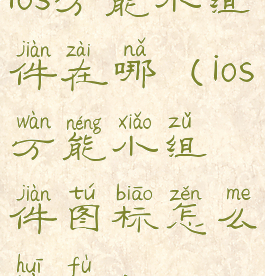 ios万能小组
jiàn zài nǎ
件在哪（ios
wàn néng xiǎo zǔ
万能小组
jiàn tú biāo zěn me
件图标怎么
huī fù